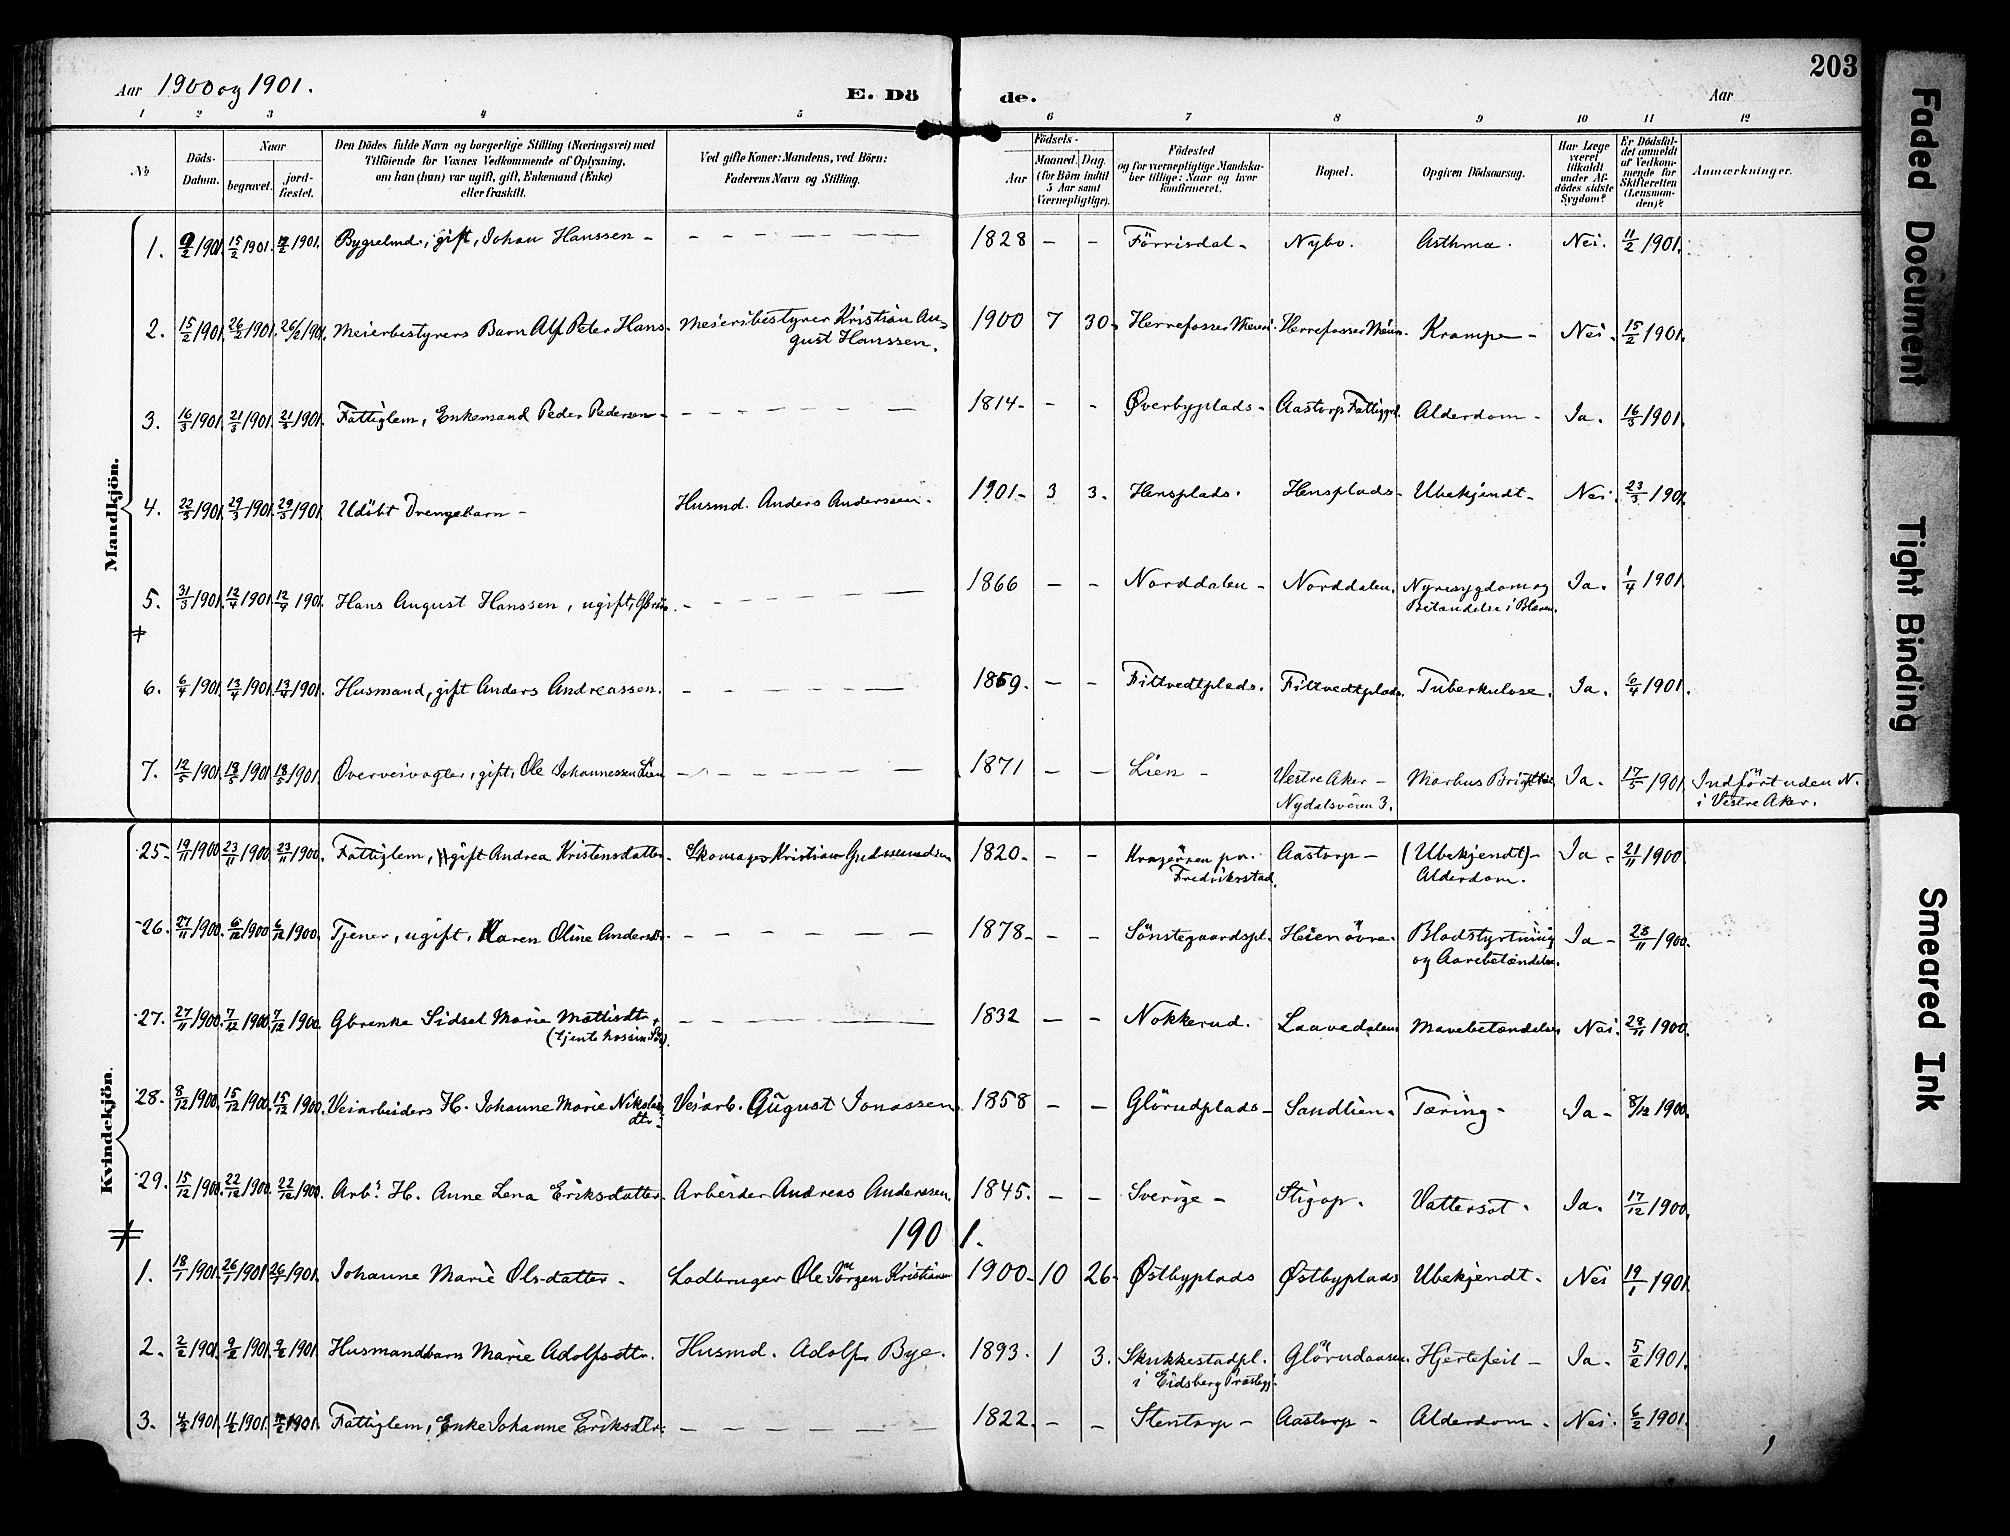 203
Aar 1900 og 1901.
E. Dö de.
Aar
1 2 3 4 5 6 7 8 9 10 11 12
No
Döds-Datum.
Naar
begravet.
jord-fæstet.
Den Dödes fulde Navn og borgerlige Stilling (Næringsvei) med
Tilföiende for Voxnes Vedkommende af Oplysning,
om han (hun) var ugift, gift, Enkemand (Enke)
eller fraskilt.
Ved gifte Koner: Mandens, ved Börn:
Faderens Navn og Stilling.
Födsels-
Aar
Maaned. Dag.
(for Börn indtil
5 Aar samt
Værnepligtige).
Födested
og for værnepligtige Mandska-
ber tillige: Naar og hvor
konfirmeret.
Bopæl.
Opgiven Dödsaarsag.
Har Læge
været
tilkaldt
under Af-
dödes sidste
Sygdom?
Er Dödsfal-
det anmeldt
af Vedkom-
mende for
Skifteretten
(Lensman-
den)?
Anmærkninger.
Mandkjön.
1. 9/2 1901 15/2 1901. 1901. gift, Johan Hanssen - 1828 - - Förrisdal - Nybo. Asthma. Nei. 11/2 1901.
2. 15/2 1901 26/2 1901. 26/2 1901. Meieribestyrers Barn Alf Peter Hans. Meieribestyrer Kristian Au-
gust Hanssen. 1900 7 30. Herrefosser Meieri. Herrefosser Meieri. Krampe - Nei. 15/2 1901.
3. 16/3 1901. 21/3 1901. 21/3 1901. Fattiglem, Enkemand Peder Pedersen - 1814 - - Överbyplads - Aastorp Fattiggd. Alderdom - Ja. 16/3 1901.
4. 22/3 1901. 29/3 1901. 29/3 1901. Udöbt Drengebarn - Husmd. Anders Anderssen. 1901 - 3 3. Hensplads. Hensplads - Ubekjendt - Nei. 23/3 1901.
5. 31/3 1901. 12/4 1901. 12/4 1901. Hans August Hanssen, ugift, 1866 - - Norddalen - Norddalen. Nyresygdom og
Betændelse i Blæren. Ja. 1/4 1901.
6. 6/4 1901. 13/4 1901. 13/4 1901. Husmand, gift Anders Andreassen. 1869. - - Fittvedtplads. Fittvedtplads. Tuberkulose. Ja. 6/4 1901.
7. 12/5 1901 18/5 1901 18/5 1901. Overveivogter, gift, Ole Johannessen Lien 1871 - - Lien - Vestre Aker -
Nydalsveien 3. Morbus Brightii Ja. 17/5 1901. Indfört uden N.
i Vestre Aker.
Kvindekjön.
25. 19/11 1900 23/11 1900 23/11 1900. Fattiglem, gift Andrea Kristensdatter. Skomager Kristian Gudmundsen 1820. - - Kragerøen pr.
Fredriksstad. Aastorp - (Ubekjendt) -
Alderdom. Ja - 21/11 1900.
26. 27/11 1900. 6/12 1900. 6/12 1900. Tjener, ugift, Karen Oline Andersdt. 1878 - - Sönstegaardspl. Heien övre. Blodstyrtning
og Aarebetændelse. Ja - 28/11 1900.
27. 27/11 1900. 7/12 1900. 7/12 1900. Gbrenke Sidsel Marie Mattisdt.
(tjente hos sin Sön). 1832 - - Nokkerud. Laavedalen. Mavebetændelse Nei. 28/11 1900.
28. 8/12 1900. 15/12 1900. 15/12 1900. Veiarbeiders H. Johanne Marie Nikolai
dtr. Veiarb. August Jonassen 1858 - - Glörudplads - Sandlien - Tæring - Ja - 8/12 1900.
29. 15/12 1900. 22/12 1900. 22/12 1900. Arb's H. Anne Lena Eriksdatter. Arbeider Andreas Anderssen. 1845. - - Sverige - Stigop. Vattersot. Ja. 17/12 1900.
1901.
1. 18/1 1901. 26/1 1901 26/1 1901. Johanne Marie Olsdatter. Ladbruger Ole Jörgen Kristiansen 1900. 10 26. Østbyplads Østbyplads Ubekjendt. Nei 19/1 1901.
2. 2/2 1901. 9/2 1901. 9/2 1901. Husmandbarn Marie Adolfsdtr. Husmd. Adolf Bye. 1893. 1 3. Skukkestadpl.
i Eidsberg Præstegj. Glörudaasen. Hjertefeil - Ja. 5/2 1901.
3. 4/2 1901. 1901. 1901. Fattiglem, Enke Johanne Eriksdtr. 1822. - - Stentorp - Aastorp - Alderdom. Nei. 6/2 1901.
Faded Document
Tight Binding
Smeared Ink